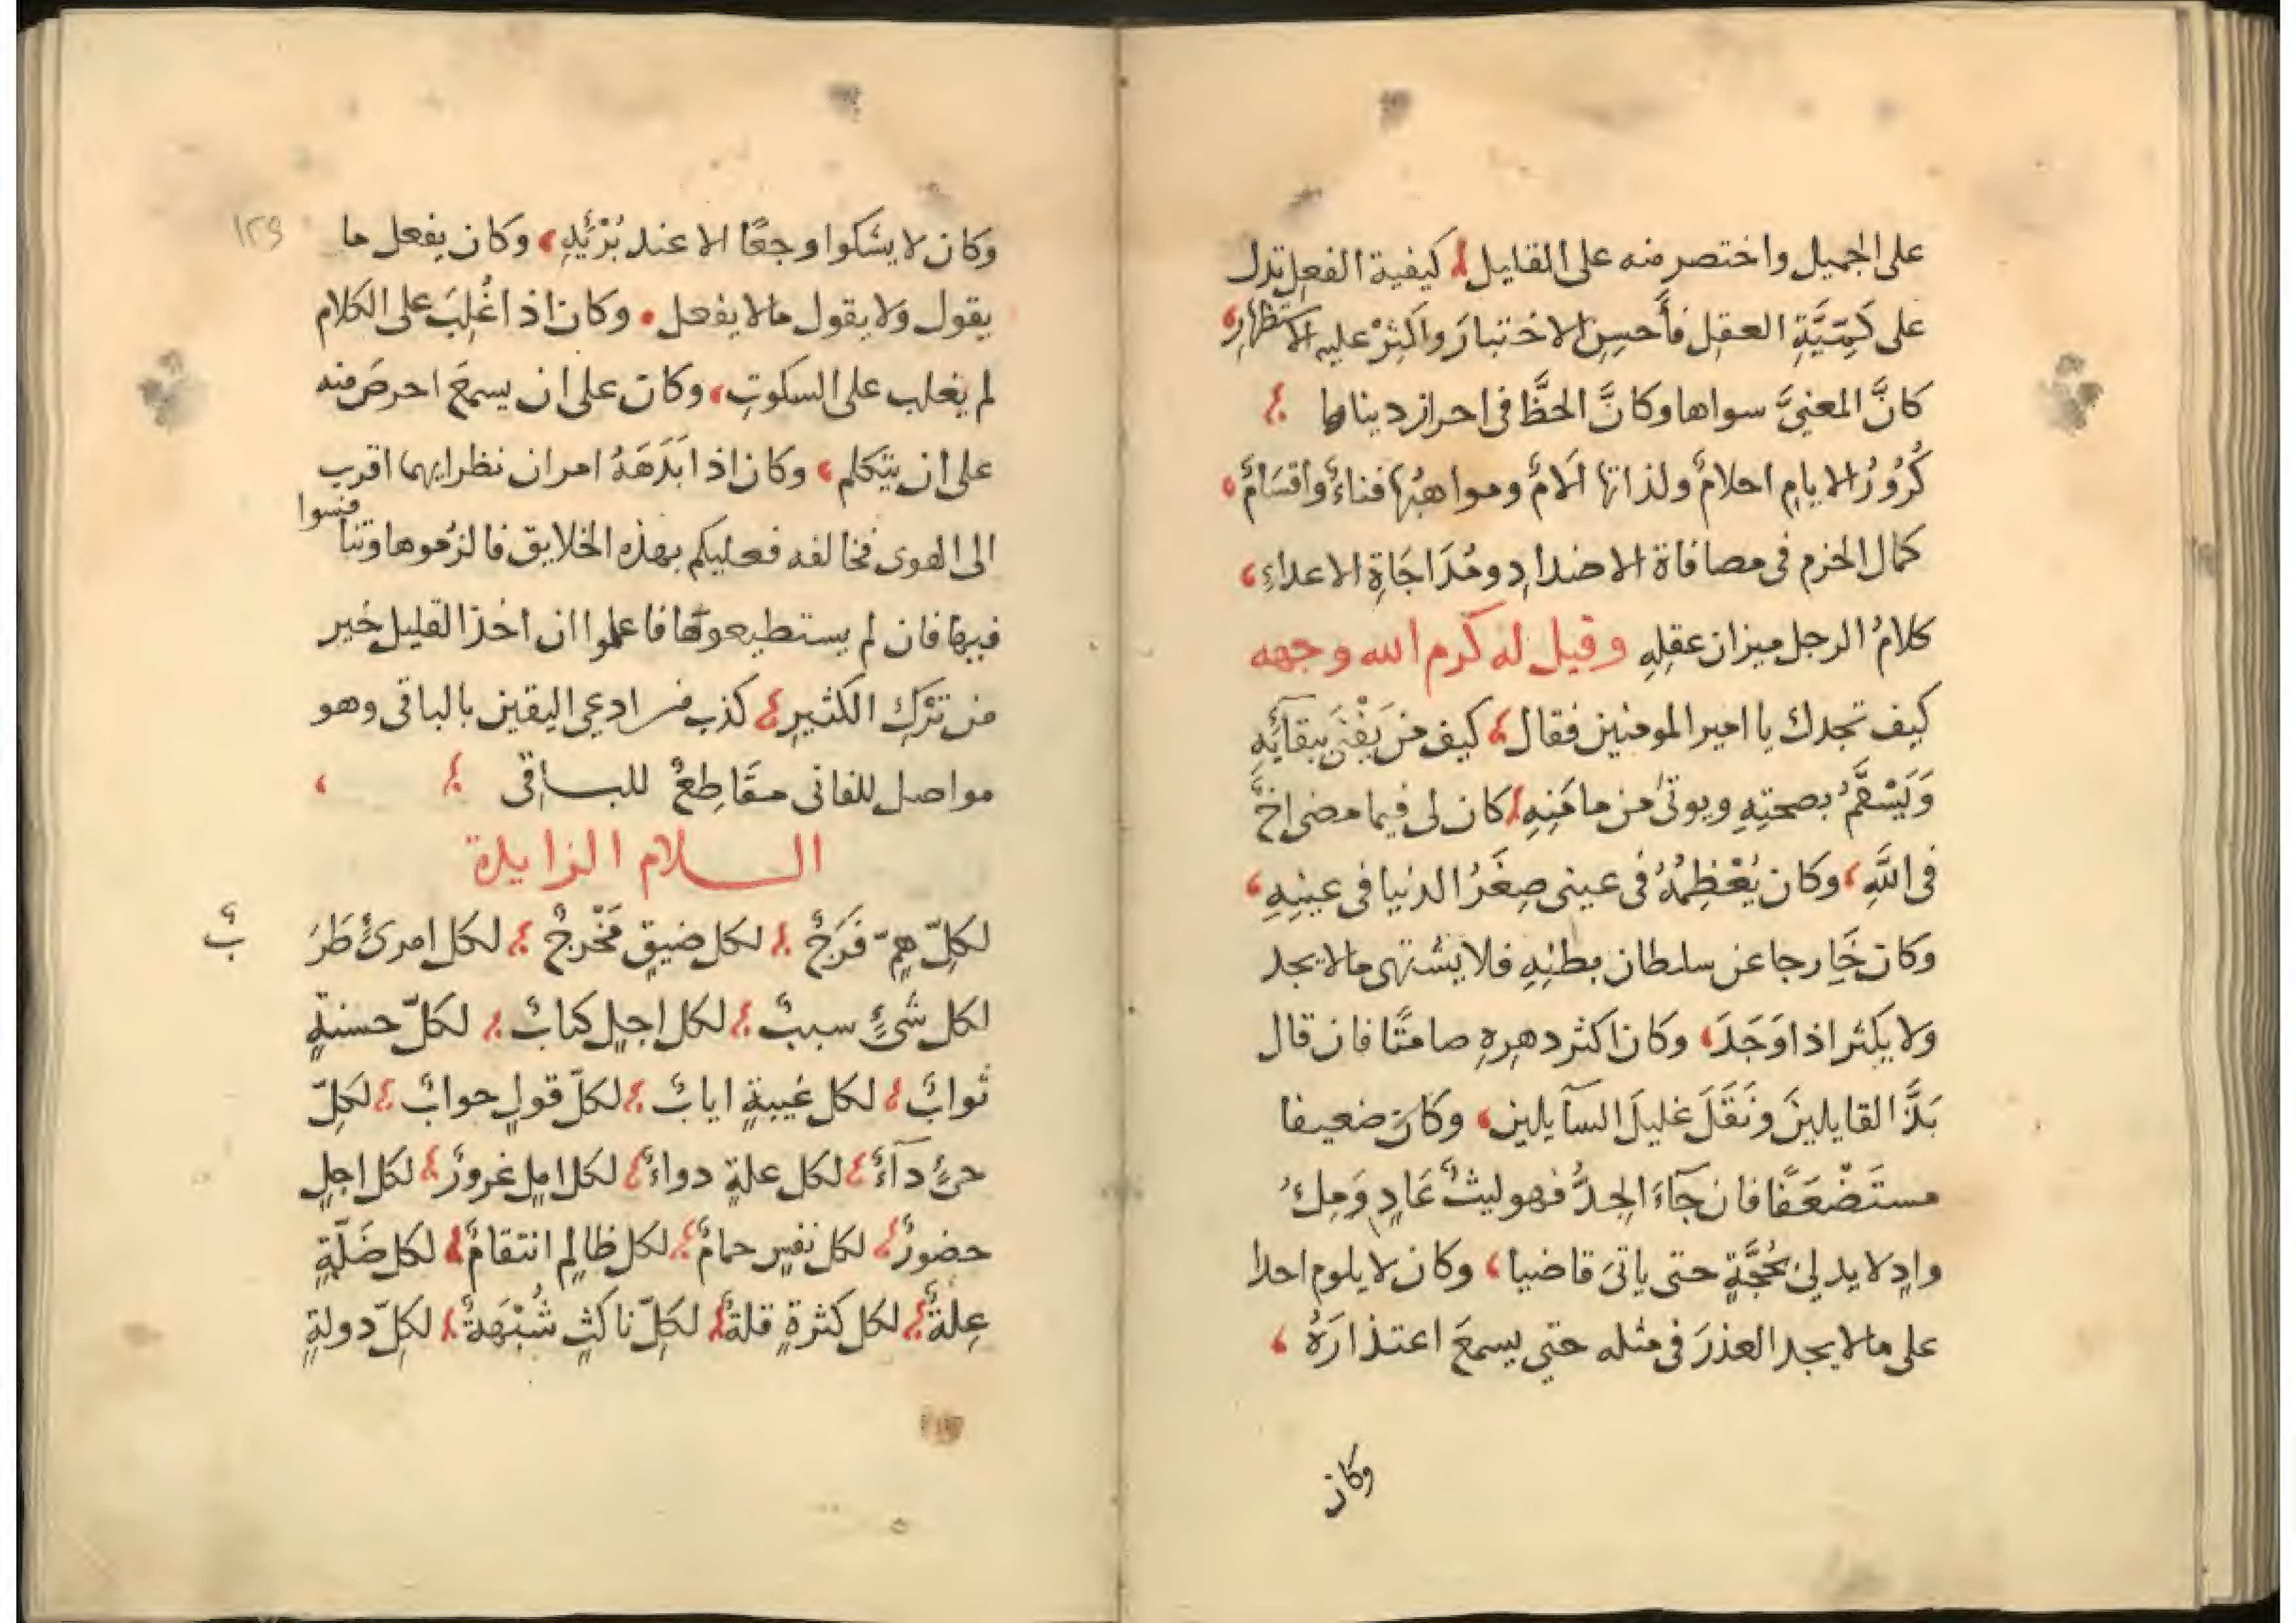 على الجميل واختصر منه على القليل كيفية الفعل تدل
على كَمِّيَّةِ العقل فأَحسِن الاختبارَ واكثِرْ عليه الاستظهارِ
كانَّ المعنيَّ سواها وكانَّ الحظَّ فى احراز ديناها
كُرُورُ الايام احلامٌ ولذاتها آلامٌ ومواهبُها فناءٌ واقسَامٌ
كمال الحزم فى مصافاة الاضدادِ ومُدَاجَاةِ الاعداءِ
كلامُ الرجل ميزان عقلِهِ وقيل له كرم الله وجهه
كيف تجدك يا امير المومنين فقال كيف من يَفْنَى ببقآئِهِ
وَيَسْقَمُ بصحتِهِ ويوتىٰ من مامَنِهِ كان لى فيما مضى اخٌ
فى اللَّهِ وكان يُعْظِمُهُ فى عينى صِغَرُ الدنيا فى عينِهِ
وكان خَارجا عن سلطان بطنِهِ فلا يشتهى مالا يجد
ولا يكثر اذا وَجَدَ وكان اكثر دهرِهِ صامتًا فان قال
بَذَّ القايلينَ ونَقَلَ غليلَ السآيلين وكان ضعيفا
مستَضْعَفًا فان جآءَ الجِدُّ فهو ليثٌ عَادٍ وَصِلُّ
وادٍ لا يدلى بحُجَّةٍ حتى ياتىَ قاضيا وكان لا يلوم احدا
على مالا يجد العذرَ فى مثله حتى يسمعَ اعتذارَهُ
وكان
١٢٩
وكان لا يشكوا وجعًا الا عند بُرْئِهِ وكان يفعل ما
يقول ولا يقول مالا يفعل وكان اذا غُلِبَ على الكلام
لم يغلب على السكوتِ وكان على ان يسمعَ احرصَ منه
على ان يتكلم وكان اذا بَدَهَهُ امران نظر ايهما اقرب
الى الهوى فخالفه فعليكم بهذه الخلايق فالزموها وتنافسوا
فيها فان لم يستطيعوها فاعلموا ان اخذ القليل خير
من تَرْكِ الكثيرِ كذب من ادعى اليقين بالباقى وهو
مواصل للفانى مقَاطِعٌ للباقى
السلام الزايدة
لكلّ همٍّ فَرَجٌ لكل ضيقٍ مَخْرجٌ لكل امرئٍ طَرَبٌ
لكل شىءٍ سببٌ لكل اجلٍ كتابٌ لكلّ حسنةٍ
ثوابٌ لكل غيبةٍ ايابٌ لكلّ قولٍ جوابٌ لكلّ
حىٍّ دآءٌ لكل علةٍ دواءٌ لكل املٍ غرورٌ لكل اجلٍ
حضورٌ لكل نفسٍ حمامٌ لكل ظالمٍ انتقامٌ لكل ضَلّةٍ
عِلةٌ لكل كثرةٍ قلةٌ لكلّ ناكثٍ شُبْهَةٌ لكلّ دولةٍ